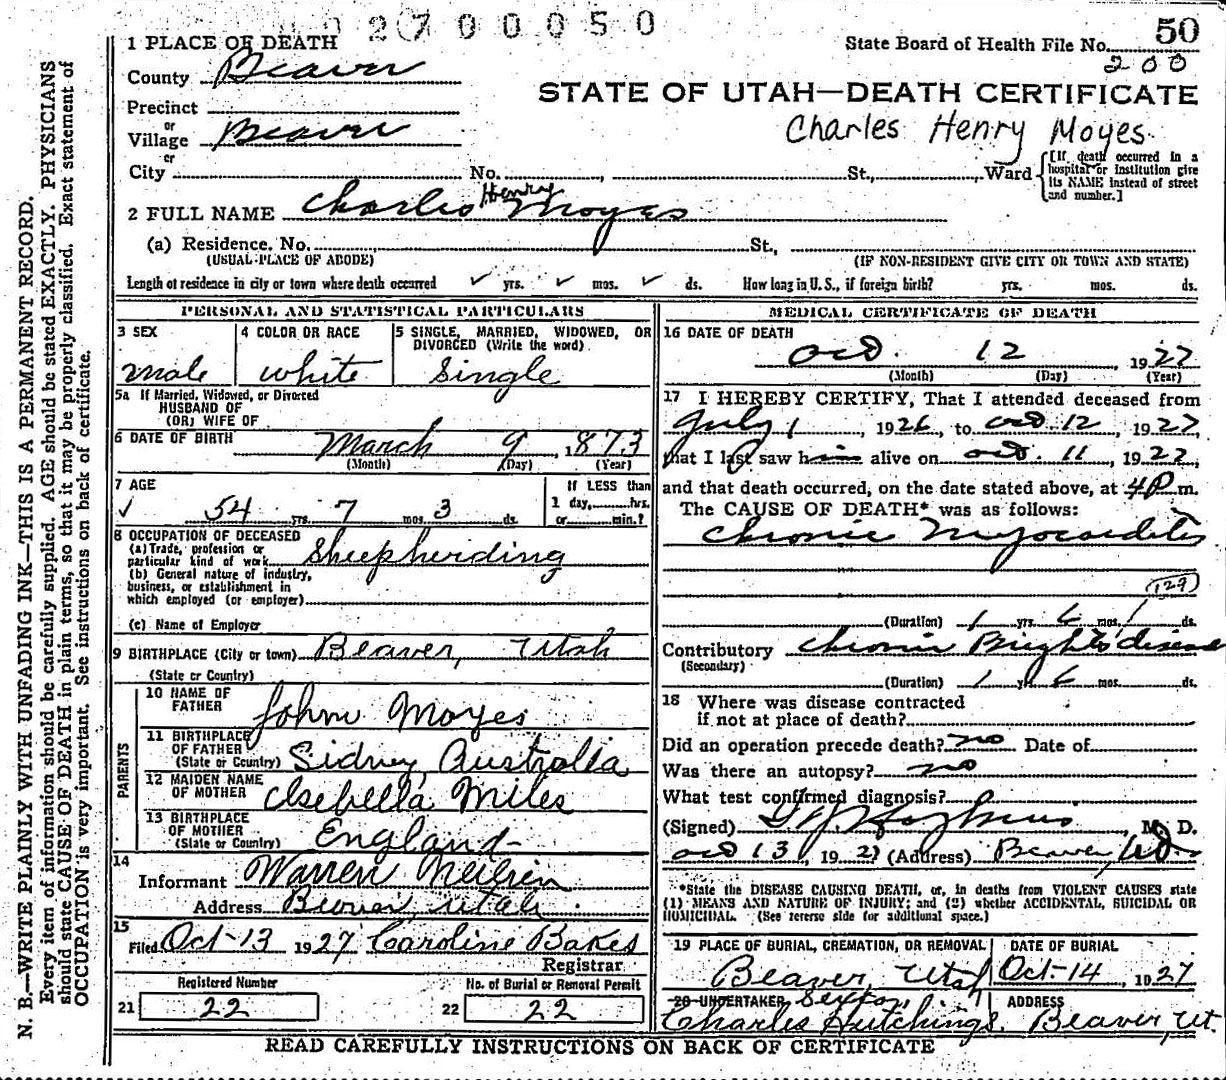 02700050
50
1 PLACE OF DEATH
State Board of Health File No.
200
County Beaver
STATE OF UTAH—DEATH CERTIFICATE
Precinct
Charles Henry Moyes
or
Village Beaver
or
City No. St., Ward
[If death occurred in a hospital or institution give its NAME instead of street and number.]
Henry
2 FULL NAME Charles Moyes
(a) Residence. No. St.,
(USUAL PLACE OF ABODE) (IF NON-RESIDENT GIVE CITY OR TOWN AND STATE)
Length of residence in city or town where death occurred ✓ yrs. ✓ mos. ✓ ds. How long in U. S., if foreign birth? yrs. mos. ds.
PERSONAL AND STATISTICAL PARTICULARS
3 SEX
male
4 COLOR OR RACE
white
5 SINGLE, MARRIED, WIDOWED, OR DIVORCED (Write the word)
Single
5a If Married, Widowed, or Divorced
HUSBAND OF
(OR) WIFE OF
6 DATE OF BIRTH March 9, 1873
(Month) (Day) (Year)
7 AGE
✓ 54 yrs. 7 mos. 3 ds.
If LESS than
1 day, hrs.
or min.?
8 OCCUPATION OF DECEASED
(a) Trade, profession or
particular kind of work Sheepherding
(b) General nature of industry,
business, or establishment in
which employed (or employer)
(c) Name of Employer
9 BIRTHPLACE (City or town) Beaver, Utah
(State or Country)
PARENTS
10 NAME OF
FATHER John Moyes
11 BIRTHPLACE
OF FATHER
(State or Country) Sidney, Australia
12 MAIDEN NAME
OF MOTHER Isebella Miles
13 BIRTHPLACE
OF MOTHER
(State or Country) England
14
Informant Warren
Address Beaver, Utah
15
Filed Oct-13 1927 Caroline Bakes
Registrar
Registered Number
21 22
No. of Burial or Removal Permit
22 22
MEDICAL CERTIFICATE OF DEATH
16 DATE OF DEATH
Oct. 12 1927
(Month) (Day) (Year)
17 I HEREBY CERTIFY, That I attended deceased from
July 1, 1926, to Oct. 12, 1927,
that I last saw him alive on Oct. 11, 1927,
and that death occurred, on the date stated above, at 4 P. m.
The CAUSE OF DEATH* was as follows:
Chronic Myocarditis
129
(Duration) 1 yrs. 6 mos. ds.
Contributory Chronic Brights disease
(Secondary)
(Duration) 1 yrs. 6 mos. ds.
18 Where was disease contracted
if not at place of death?
Did an operation precede death? no Date of
Was there an autopsy? no
What test confirmed diagnosis?
(Signed) M. D.
Oct 13, 1927 (Address) Beaver,
*State the DISEASE CAUSING DEATH, or, in deaths from VIOLENT CAUSES state
(1) MEANS AND NATURE OF INJURY; and (2) whether ACCIDENTAL, SUICIDAL OR
HOMICIDAL. (See reverse side for additional space.)
19 PLACE OF BURIAL, CREMATION, OR REMOVAL
Beaver, Utah
DATE OF BURIAL
Oct-14, 1927
20 UNDERTAKER Sexton,
Charles Hutchings.
ADDRESS
Beaver, Ut.
READ CAREFULLY INSTRUCTIONS ON BACK OF CERTIFICATE
N. B.—WRITE PLAINLY WITH UNFADING INK—THIS IS A PERMANENT RECORD.
Every item of information should be carefully supplied. AGE should be stated EXACTLY. PHYSICIANS
should state CAUSE OF DEATH in plain terms, so that it may be properly classified. Exact statement of
OCCUPATION is very important. See instructions on back of certificate.